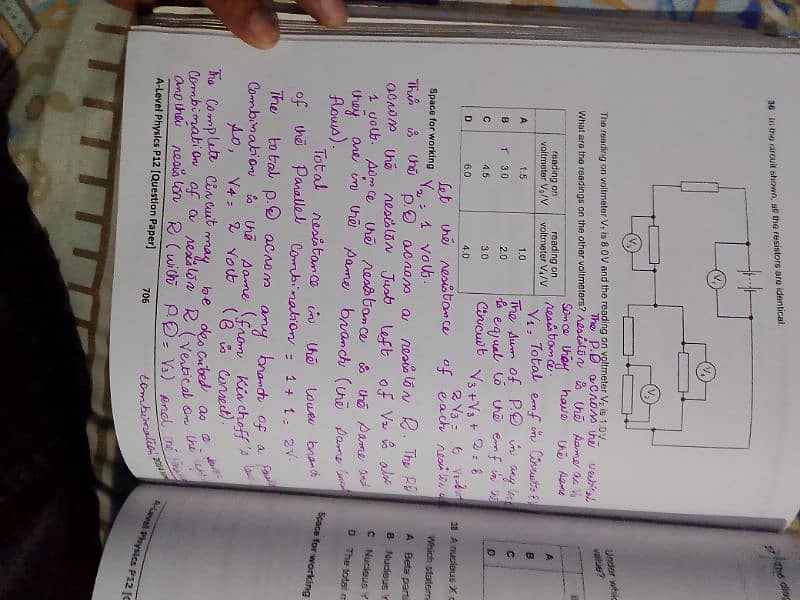 36 In the circuit shown, all the resistors are identical.
V₁
V₄
V₃
V₂
The reading on voltmeter V₁ is 8.0V and the reading on voltmeter V₂ is 1.0V.
What are the readings on the other voltmeters?
reading on voltmeter V₃/V
reading on voltmeter V₄/V
A 1.5 1.0
B 3.0 2.0
C 4.5 3.0
D 6.0 4.0
The P.D across the vertical
resistor is the same as
since they have the same
resistance.
V₁ = Total emf in circuit = 8
The sum of P.D in any
is equal to the emf in the
Circuit V₃+V₃+2=8
2V₃ = 6
Space for working
Let the resistance of each resistor
V₂ = 1 volt.
This is the P.D across a resistor R. The P.D
across the resistor Just left of V₂ is also
1 volt. Since the resistance is the same and
they are in the same branch (the same
flows).
Total resistance in the lower branch
of the Parallel Combination = 1 + 1 = 2
The total P.D across any branch of a
Combination is the same (from Kirchoff's
So, V₄ = 2 volt (B is correct).
The complete circuit may be described as a
Combination of a resistor R (vertical on the
another resistor R (with P.D = V₃) and the
combination
A-Level Physics P12 [Question Paper]
706
Under
value?
A
B
C
D
38 A nucleus X
Which
A Beta
B Nucleus
C Nucleus Y
D The total
Space for working
A-Level Physics P12